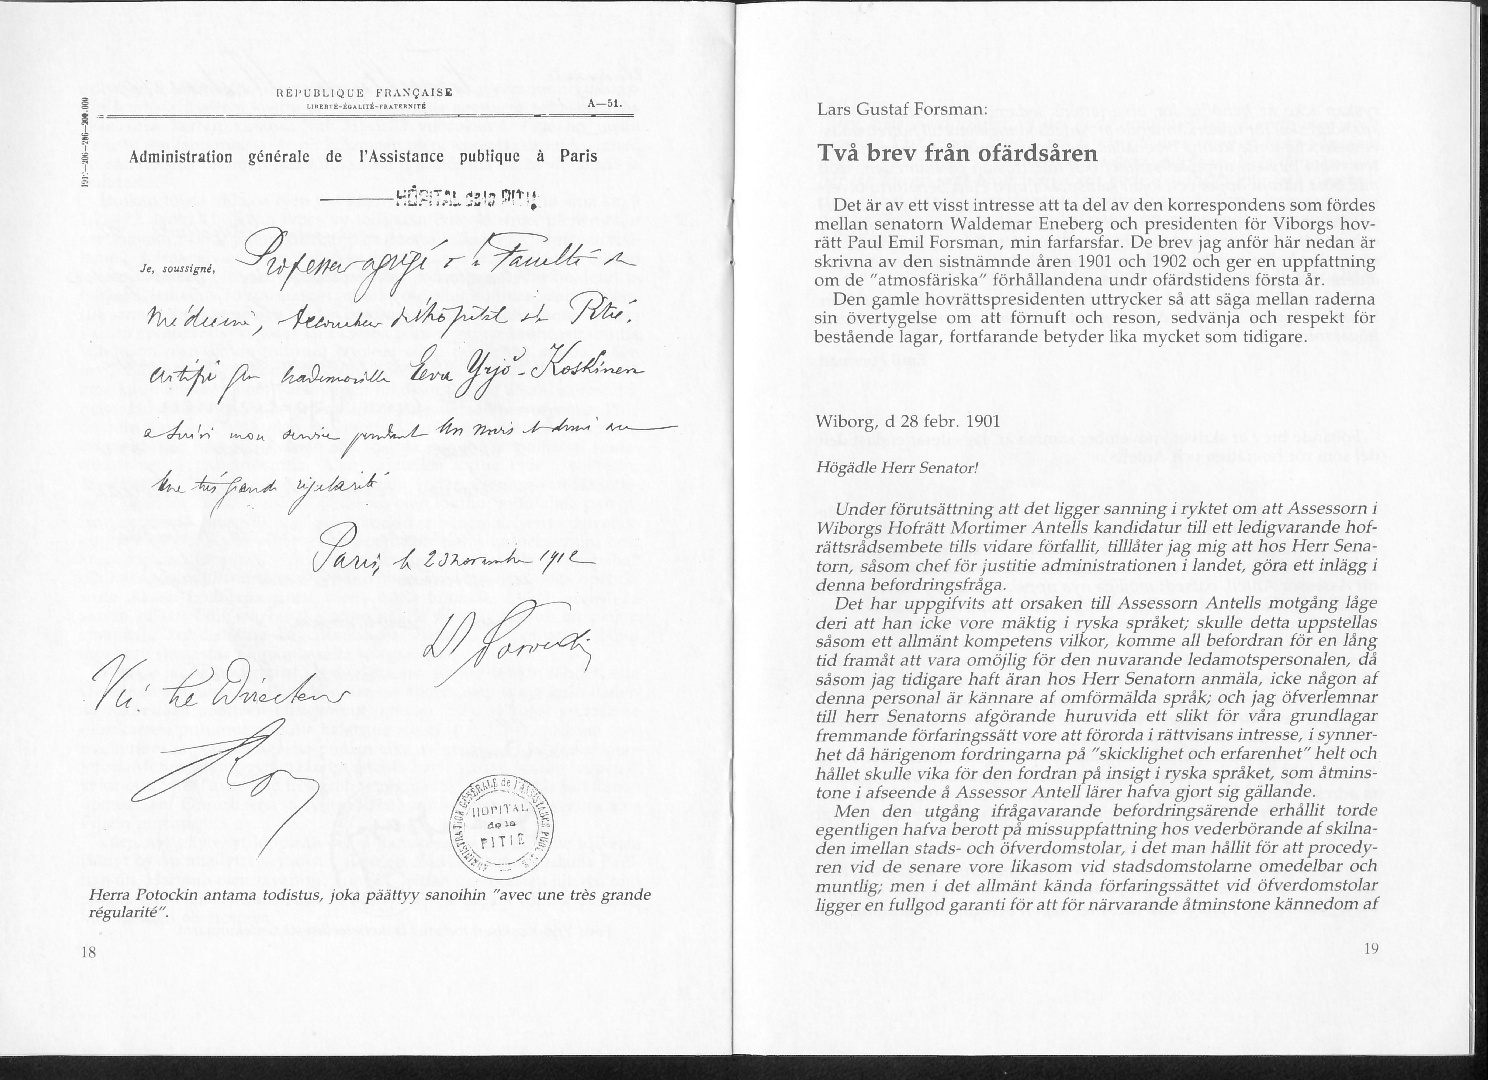 RÉPUBLIQUE FRANÇAISE
LIBERTÉ-ÉGALITÉ-FRATERNITÉ
A—51.
Administration générale de l'Assistance publique à Paris
HÔPITAL de la PITIÉ
Je, soussigné, Professeur agrégé à la Faculté de
Médecine, Accoucheur de l'hôpital de la Pitié,
certifie que Mademoiselle Eeva Yrjö-Koskinen
a suivi mon service pendant un mois et demi avec
une très grande régularité
Paris, le 23 novembre 1912
Vu: Le Directeur
ADMINISTRATION GÉNÉRALE de l'ASSISTANCE PUBL.
HOPITAL
de la
PITIÉ
Herra Potockin antama todistus, joka päättyy sanoihin "avec une très grande
régularité".
18
Lars Gustaf Forsman:
Två brev från ofärdsåren
Det är av ett visst intresse att ta del av den korrespondens som fördes
mellan senatorn Waldemar Eneberg och presidenten för Viborgs hov-
rätt Paul Emil Forsman, min farfarsfar. De brev jag anför här nedan är
skrivna av den sistnämnde åren 1901 och 1902 och ger en uppfattning
om de "atmosfäriska" förhållandena undr ofärdstidens första år.
Den gamle hovrättspresidenten uttrycker så att säga mellan raderna
sin övertygelse om att förnuft och reson, sedvänja och respekt för
bestående lagar, fortfarande betyder lika mycket som tidigare.
Wiborg, d 28 febr. 1901
Högädle Herr Senator!
Under förutsättning att det ligger sanning i ryktet om att Assessorn i
Wiborgs Hofrätt Mortimer Antells kandidatur till ett ledigvarande hof-
rättsrådsembete tills vidare förfallit, tilllåter jag mig att hos Herr Sena-
torn, såsom chef för justitie administrationen i landet, göra ett inlägg i
denna befordringsfråga.
Det har uppgifvits att orsaken till Assessorn Antells motgång låge
deri att han icke vore mäktig i ryska språket; skulle detta uppstellas
såsom ett allmänt kompetens vilkor, komme all befordran för en lång
tid framåt att vara omöjlig för den nuvarande ledamotspersonalen, då
såsom jag tidigare haft äran hos Herr Senatorn anmäla, icke någon af
denna personal är kännare af omförmälda språk; och jag öfverlemnar
till herr Senatorns afgörande huruvida ett slikt för våra grundlagar
fremmande förfaringssätt vore att förorda i rättvisans intresse, i synner-
het då härigenom fordringarna på "skicklighet och erfarenhet" helt och
hållet skulle vika för den fordran på insigt i ryska språket, som åtmins-
tone i afseende å Assessor Antell lärer hafva gjort sig gällande.
Men den utgång ifrågavarande befordringsärende erhållit torde
egentligen hafva berott på missuppfattning hos vederbörande af skilna-
den imellan stads- och öfverdomstolar, i det man hållit för att procedy-
ren vid de senare vore likasom vid stadsdomstolarne omedelbar och
muntlig; men i det allmänt kända förfaringssättet vid öfverdomstolar
ligger en fullgod garanti för att för närvarande åtminstone kännedom af
19